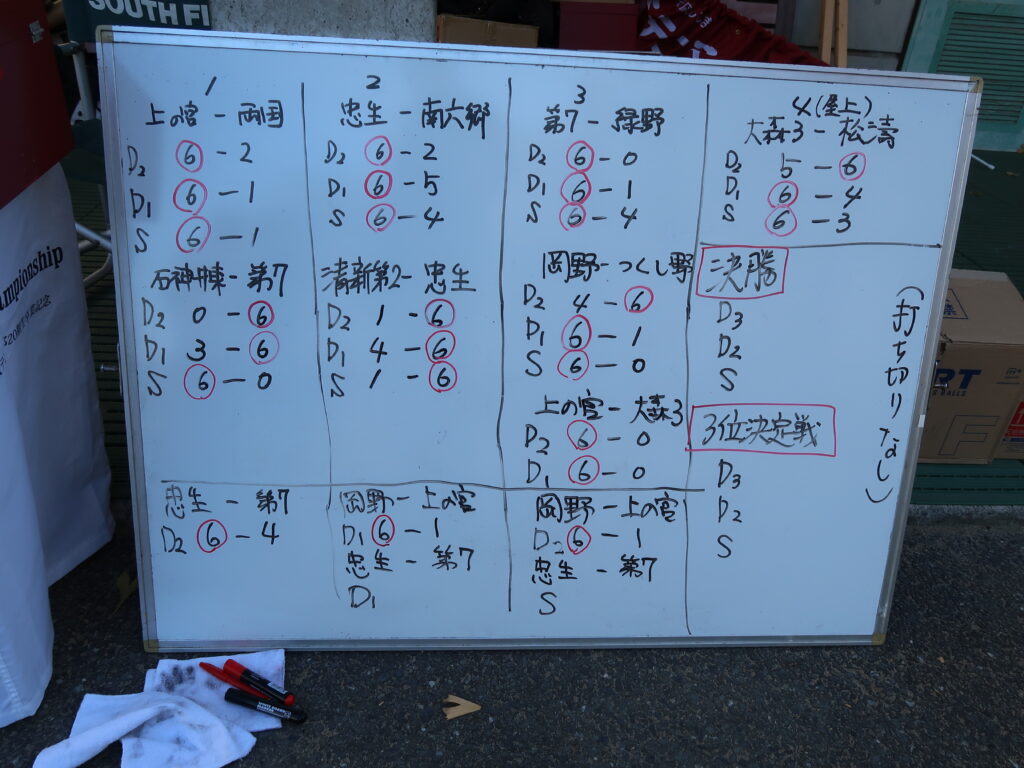 SOUTH FI
1
上の宮 - 両国
D2 6 - 2
D1 6 - 1
S 6 - 1
石神井東 - 第7
D2 0 - 6
D1 3 - 6
S 6 - 0
2
忠生 - 南六郷
D2 6 - 2
D1 6 - 5
S 6 - 4
清新第2 - 忠生
D2 1 - 6
D1 4 - 6
S 1 - 6
3
第7 - 緑野
D2 6 - 0
D1 6 - 1
S 6 - 4
岡野 - つくし野
D2 4 - 6
D1 6 - 1
S 6 - 0
上の宮 - 大森3
D2 6 - 0
D1 6 - 0
4(屋上)
大森3 - 松濤
D2 5 - 6
D1 6 - 4
S 6 - 3
決勝
D3
D2
S
3位決定戦
D3
D2
S
(打ち切りなし)
忠生 - 第7
D2 6 - 4
岡野 - 上の宮
D1 6 - 1
忠生 - 第7
D1
岡野 - 上の宮
D2 6 - 1
忠生 - 第7
S
mpionship
RT
BALLS
F